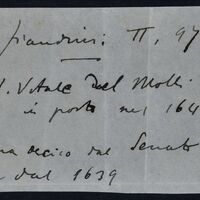 Fiandrini: II, 97
S. Vitale del Molli
in posto nel 164
deciso dal Senato
dal 1639